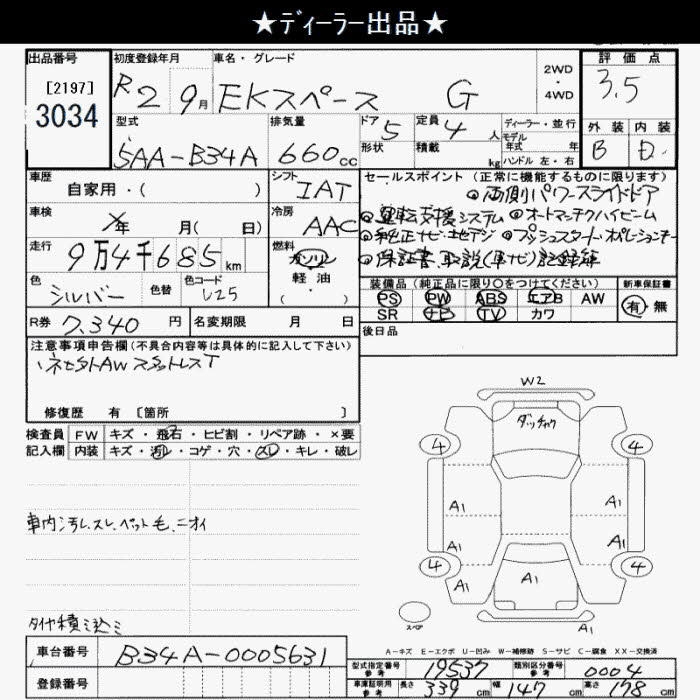 ★ディーラー出品★
出品番号
[2197]
3034
初度登録年月
R2 9月
車名・グレード
EKスペース G
2WD
・
4WD
評価点
3.5
型式
5AA-B34A
排気量
660cc
ドア
5
形状
定員
4人
積載
kg
ディーラー・並行
モデル
年式 年
ハンドル 左・右
外装
B
内装
D
車歴
自家用・( )
シフト
IAT
車検
年 月( 日)
冷房
AAC
走行
9万4千685km
燃料
ガソリン
軽油
( ・ )
色
シルバー
色替
色コード
U25
R券
7,340円
名変期限 月 日
セールスポイント(正常に機能するものに限ります)
◎両側パワースライドドア
◎運転支援システム ◎オートマチックハイビーム
◎純正ナビ・地デジ ◎プッシュスタート・オペレーションキー
◎保証書、取説(車ナビ)記録簿
装備品(純正品に限り○をつけてください)
PS PW ABS エアB AW
SR ナビ TV カワ
新車保証書
有・無
後日品
注意事項申告欄(不具合内容等は具体的に記入して下さい)
AWスタットレスT
修復歴 有 〔箇所 〕
検査員
記入欄
FW キズ・飛石・ヒビ割・リペア跡・×要
内装 キズ・汚レ・コゲ・穴・スレ・キレ・破レ
車内汚れ、スレ、ペット毛、ニオイ
タイヤ積ミ込ミ
W2
ダッチャク
4
4
A1
A1
A1
A1
4
4
A1
A1
A1
スペア
A1
A-キズ E-エクボ U-凹み W-補修跡 S-サビ C-腐食 XX-交換済
車台番号
B34A-0005631
登録番号
型式指定番号
参考
19537
類別区分番号
参考
0004
車庫証明用
参考
長さ 339cm 幅 147cm 高さ 178cm